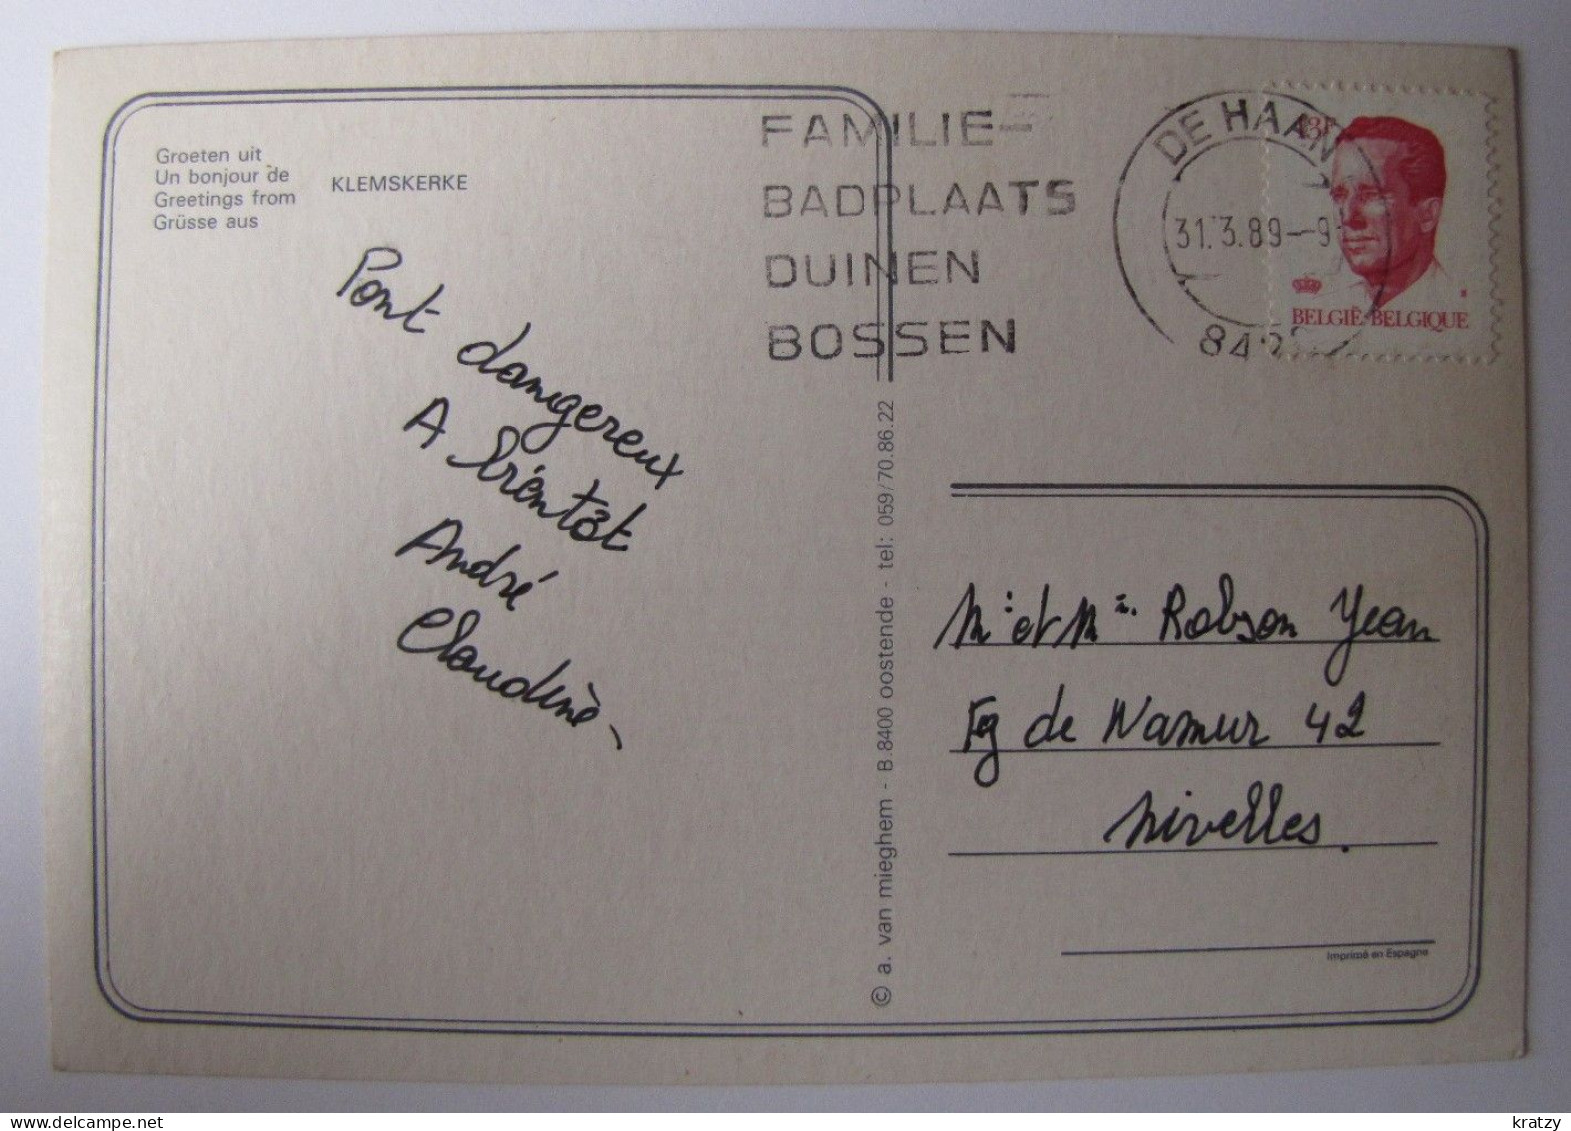 Groeten uit
Un bonjour de
Greetings from
Grüsse aus
KLEMSKERKE
Pont dangereux
A bientôt
André
Claudine
FAMILIE-
BADPLAATS
DUINEN
BOSSEN
DE HAAN
1
31.3.89-9
13F
BELGIË-BELGIQUE
© a. van mieghem - B.8400 oostende - tel: 059/70.86.22
Mr et Mme Robson Jean
Fg de Namur 42
Nivelles.
Imprimé en Espagne
kratzy